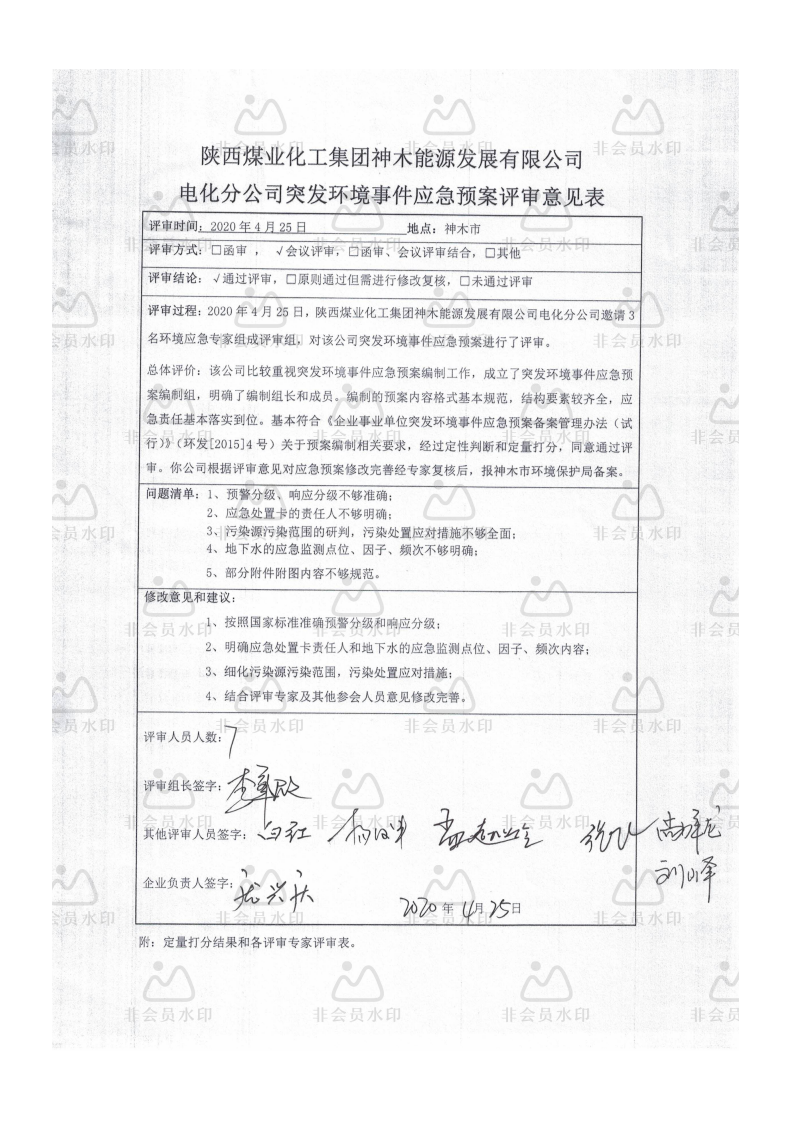 陕西煤业化工集团神木能源发展有限公司
电化分公司突发环境事件应急预案评审意见表
评审时间：2020 年 4 月 25 日 地点：神木市
评审方式：□函审 ， √会议评审，□函审、会议评审结合，□其他
评审结论：√通过评审，□原则通过但需进行修改复核，□未通过评审
评审过程：2020 年 4 月 25 日，陕西煤业化工集团神木能源发展有限公司电化分公司邀请 3
名环境应急专家组成评审组，对该公司突发环境事件应急预案进行了评审。
总体评价：该公司比较重视突发环境事件应急预案编制工作，成立了突发环境事件应急预
案编制组，明确了编制组长和成员。编制的预案内容格式基本规范，结构要素较齐全，应
急责任基本落实到位。基本符合《企业事业单位突发环境事件应急预案备案管理办法（试
行）》（环发[2015]4 号）关于预案编制相关要求，经过定性判断和定量打分，同意通过评
审。你公司根据评审意见对应急预案修改完善经专家复核后，报神木市环境保护局备案。
问题清单：1、预警分级、响应分级不够准确；
2、应急处置卡的责任人不够明确；
3、污染源污染范围的研判，污染处置应对措施不够全面；
4、地下水的应急监测点位、因子、频次不够明确；
5、部分附件附图内容不够规范。
修改意见和建议：
1、按照国家标准准确预警分级和响应分级；
2、明确应急处置卡责任人和地下水的应急监测点位、因子、频次内容；
3、细化污染源污染范围，污染处置应对措施；
4、结合评审专家及其他参会人员意见修改完善。
评审人员人数：7
评审组长签字：
其他评审人员签字：白红
刘峰
企业负责人签字：
2020 年 4月 25日
附：定量打分结果和各评审专家评审表。
非会员水印